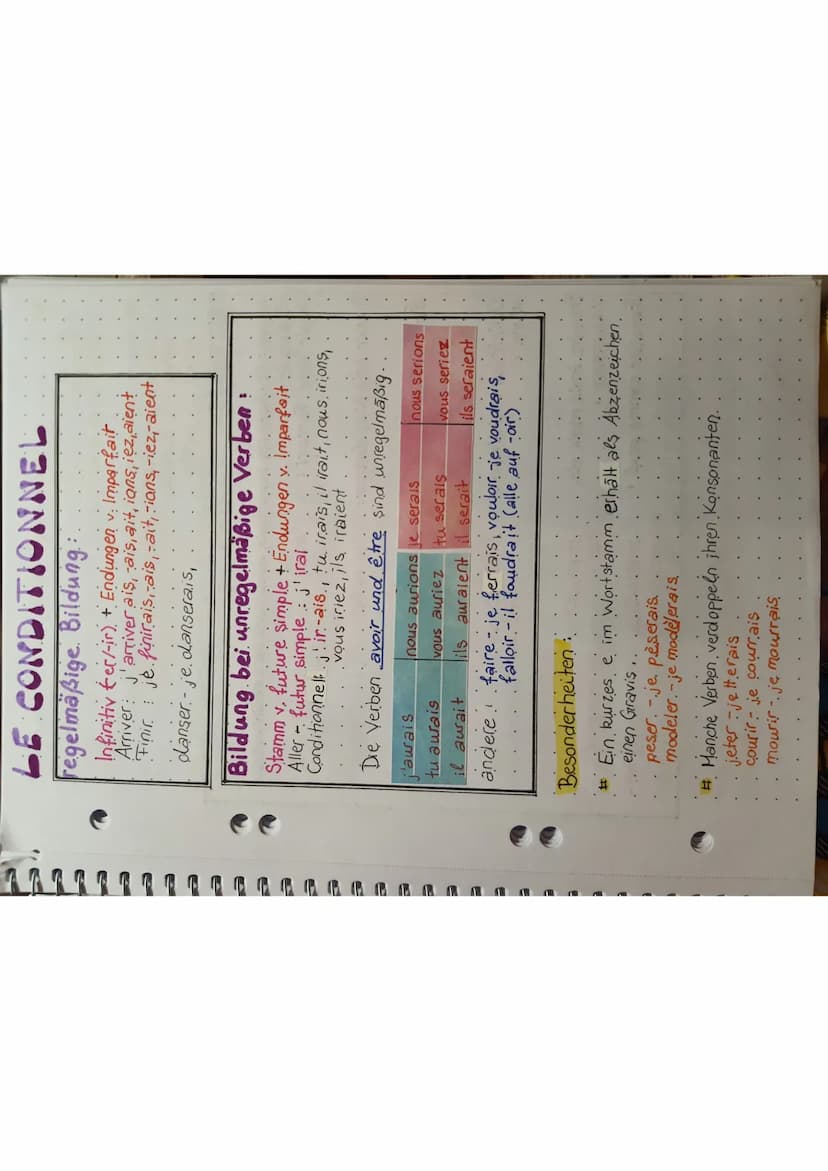 LE CONDITIONNEL
regelmäßige Bildung:
Infinitiv (-er/-ir) + Endungen v. Imparfait
Arriver: j'arriver ais, -ais, ait, ions, iez, aient
Finir : je finirais, -ais, -ait, -ions, -iez, -aient
danser - je danserais,
Bildung bei unregelmäßige Verben:
Stamm v. future simple + Endungen v. Imparfait
Aller - futur simple : j' irai
Conditionnel: j'ir-ais, tu irais, il irait, nous irions,
vous iriez, ils iraient
Die Verben avoir und être sind unregelmäßig.
j'aurais nous aurions je serais nous serions
tu aurais vous auriez tu serais vous seriez
il aurait ils auraient il serait ils seraient
andere: faire - je ferrais, vouloir - je voudrais,
falloir - il faudrait (alle auf -oir)
Besonderheiten:
# Ein kurzes e im Wortstamm erhält als Abzenzeichen
einen Gravis.
peser - je pèserais
modeler - je modèlerais
# Manche Verben verdoppeln ihren Konsonanten.
jeter - jetterais
courir - je courrais
mourir - je mourrais